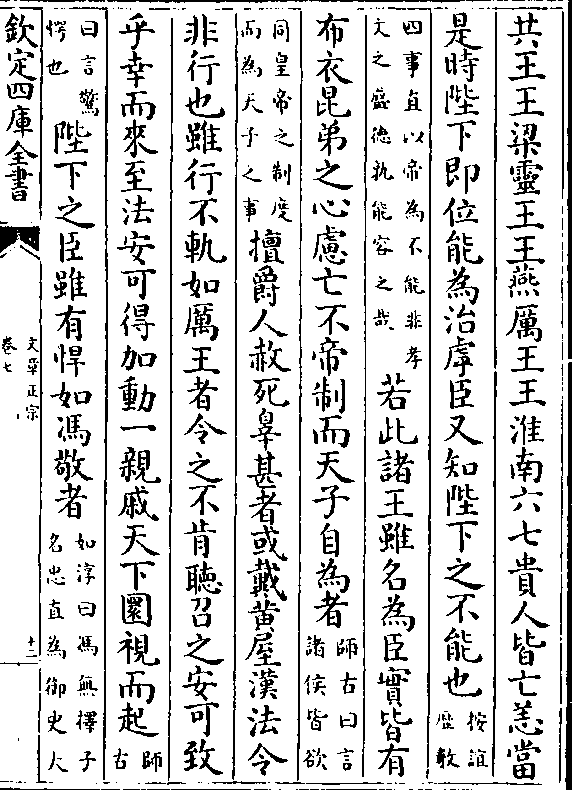 共王王梁靈王王燕厲王王淮南六七貴人皆亡恙當
是時陛下即位能為治虖臣又知陛下之不能也按誼歴敘
四事直以帝為不能非孝文之盛徳孰能容之哉若此諸王雖名為臣實皆有
布衣昆弟之心慮亡不帝制而天子自為者師古曰言諸侯皆欲
同皇帝之制度而為天子之事擅爵人赦死辠甚者或戴黄屋漢法令
非行也雖行不軌如厲王者令之不肯聽召之安可致
乎幸而來至法安可得加動一親戚天下圜視而起師古
曰言驚愕也陛下之臣雖有悍如馮敬者如淳曰馮無擇子名忠直為御史大
欽定四庫全書
文章正宗
卷七
十二